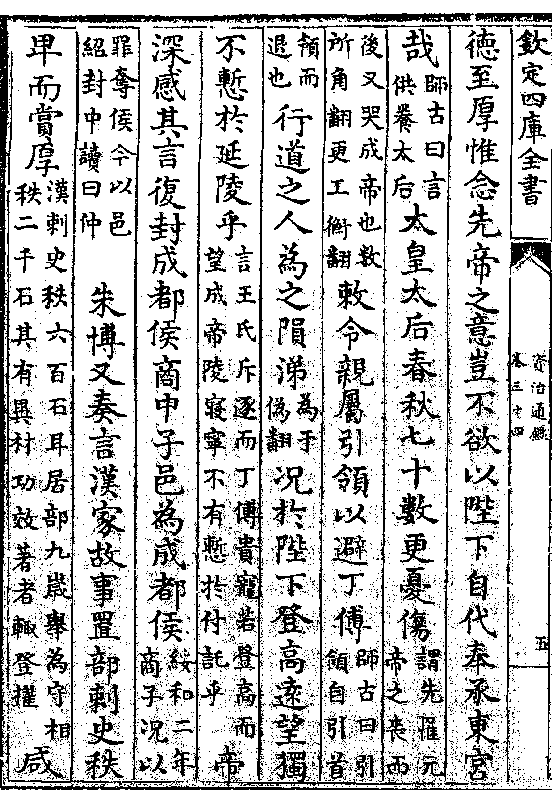 欽定四庫全書
資治通鑑
卷三十四
五
德至厚惟念先帝之意豈不欲以陛下自代奉承東宮
哉師古曰言供養太后太皇太后春秋七十數更憂傷謂先罹元帝之喪而
後又哭成帝也數所角翻更工衡翻敕令親屬引領以避丁傅師古曰引領自引首
領而退也行道之人為之隕涕為于偽翻况於陛下登高遠望獨
不慙於延陵乎言王氏斥逐而丁傅貴寵若登高而望成帝陵寢寧不有慙於付託乎帝
深感其言復封成都侯商中子邑為成都侯綏和二年商子况以
罪奪侯今以邑紹封中讀曰仲朱博又奏言漢家故事置部刺史秩
卑而賞厚漢刺史秩六百石耳居部九歲舉為守相秩二千石其有異材功效著者輒登擢咸